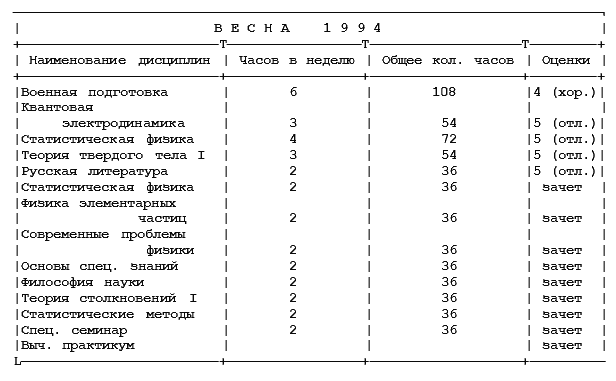 ВЕСНА 1994
Наименование дисциплин Часов в неделю Общее кол. часов Оценки
Военная подготовка 6 108 4 (хор.)
Квантовая
электродинамика 3 54 5 (отл.)
Статистическая физика 4 72 5 (отл.)
Теория твердого тела I 3 54 5 (отл.)
Русская литература 2 36 5 (отл.)
Статистическая физика 2 36 зачет
Физика элементарных
частиц 2 36 зачет
Современные проблемы
физики 2 36 зачет
Основы спец. знаний 2 36 зачет
Философия науки 2 36 зачет
Теория столкновений I 2 36 зачет
Статистические методы 2 36 зачет
Спец. семинар 2 36 зачет
Выч. практикум зачет